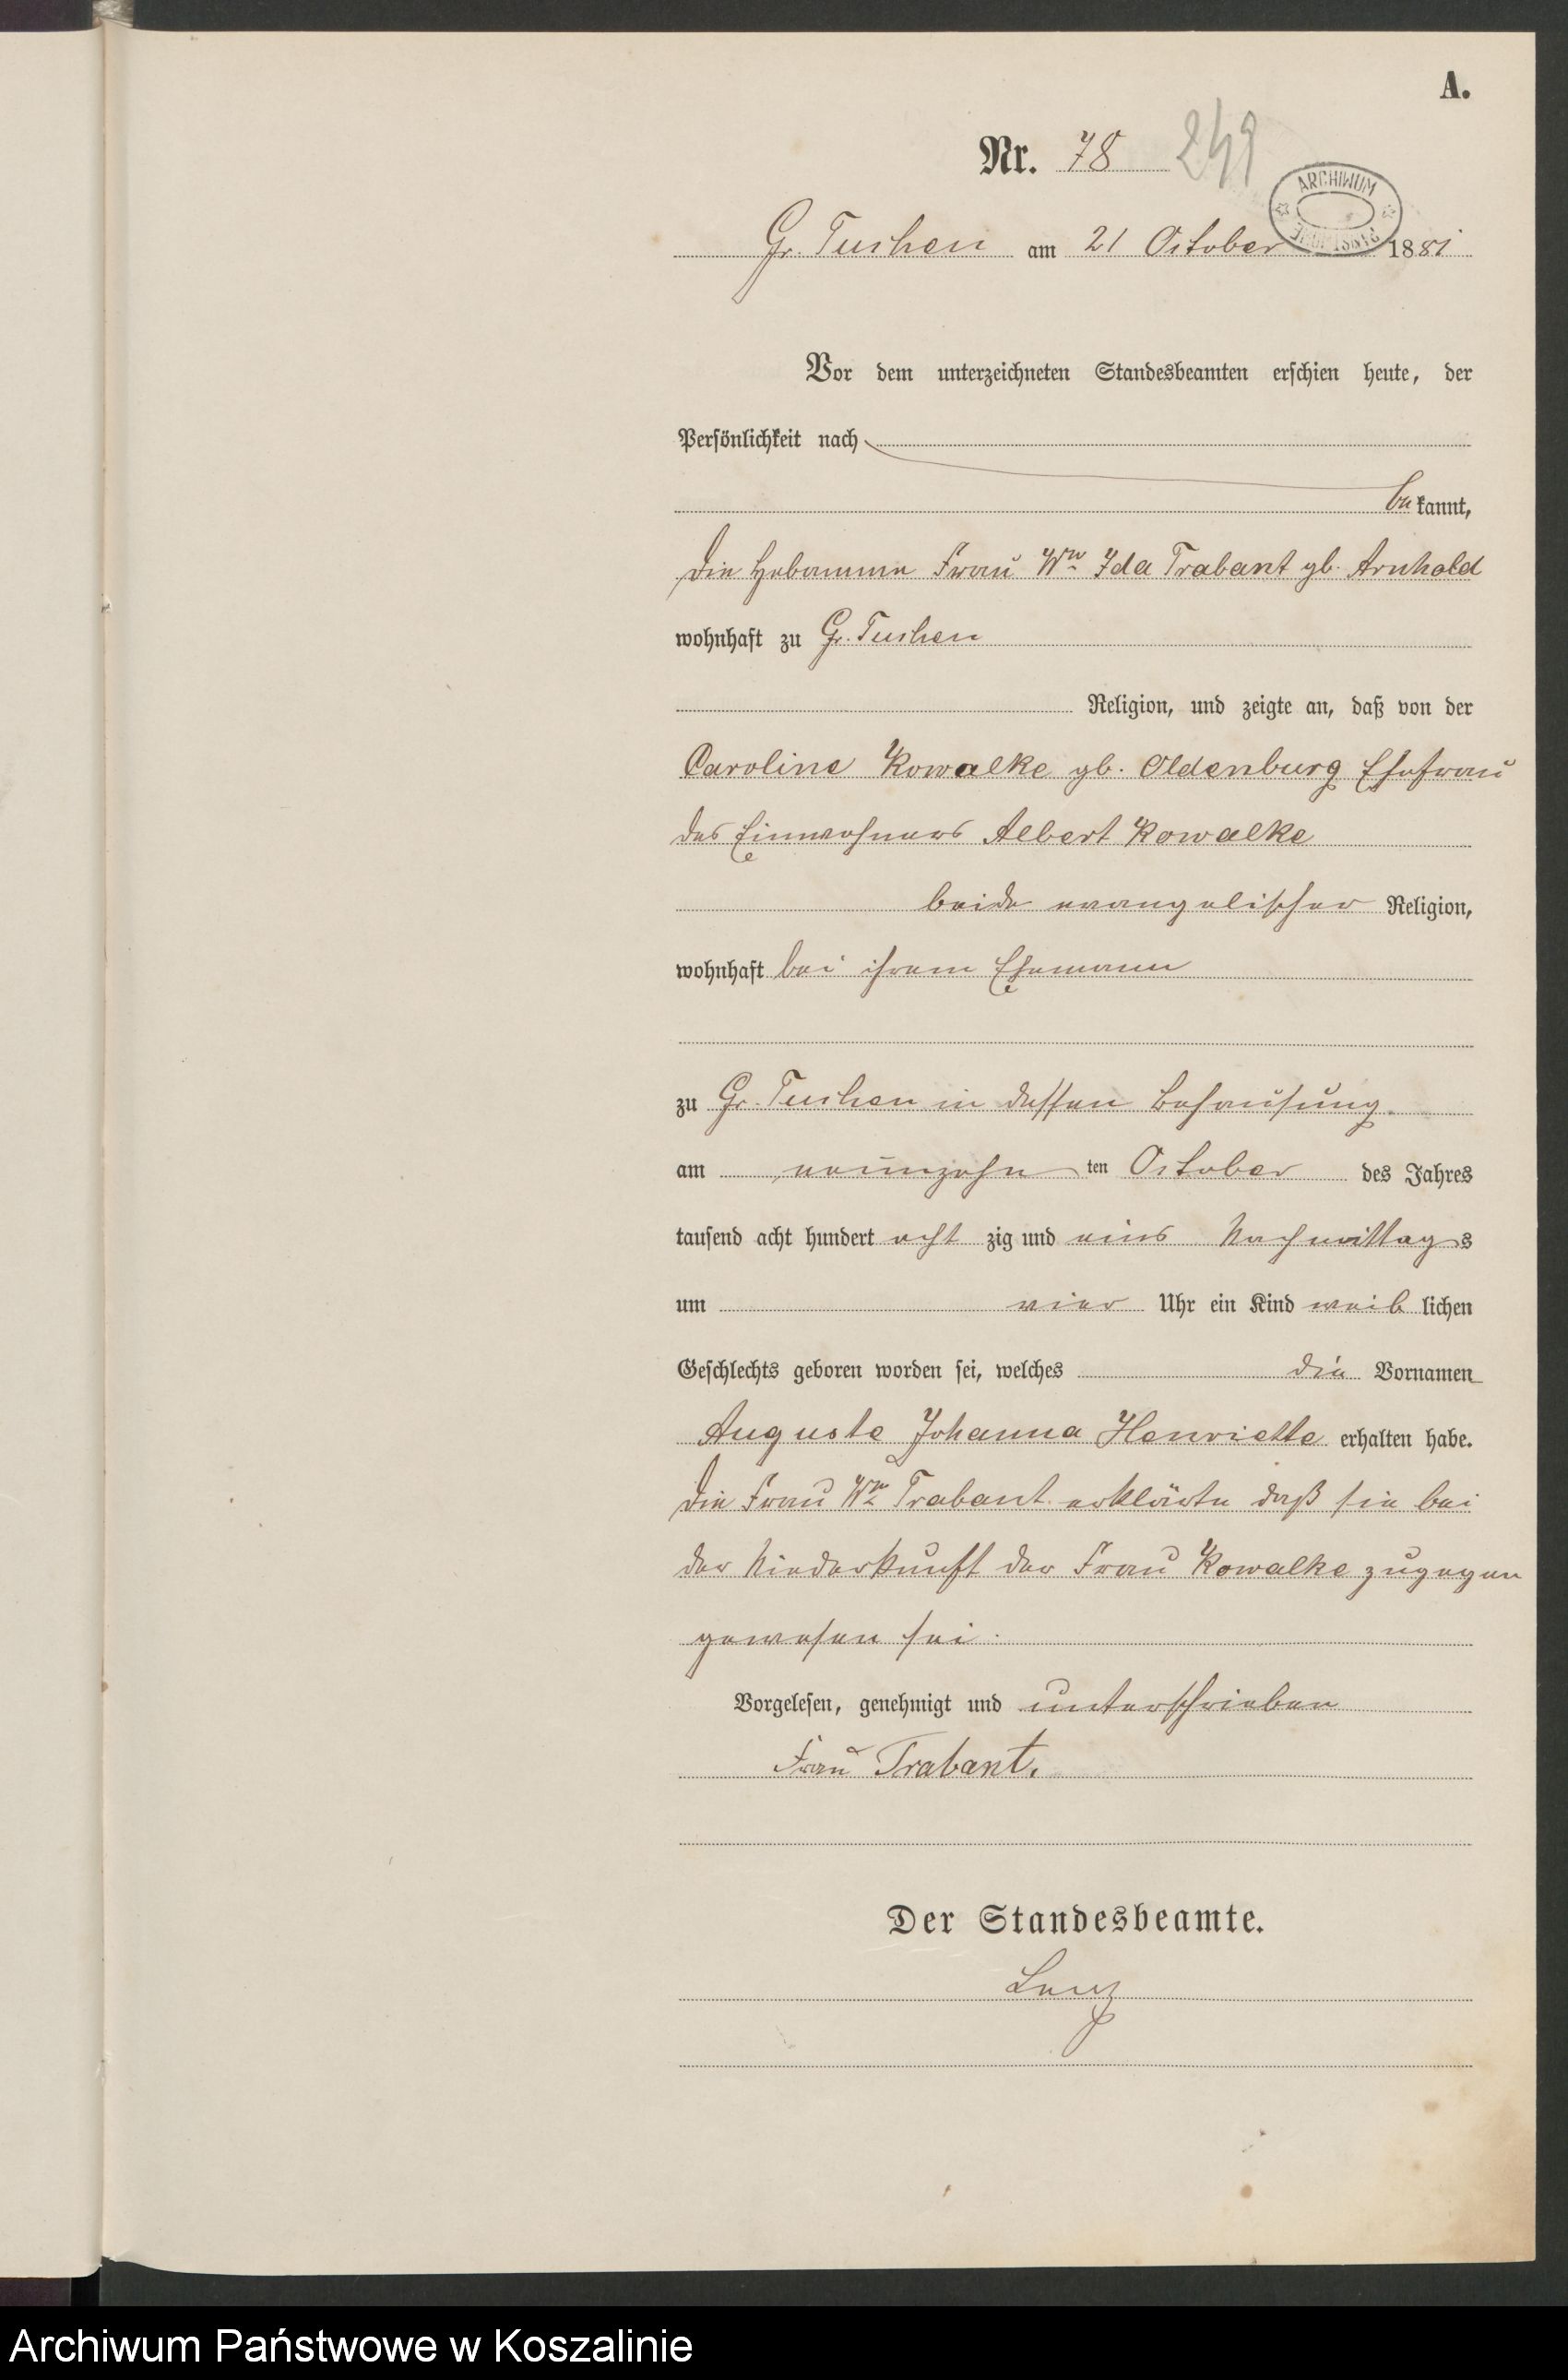 A.
Nr. 78 249
ARCHIWUM
Gr. Tuchen am 21 October 1881
Vor dem unterzeichneten Standesbeamten erschien heute, der
Persönlichkeit nach
bekannt,
die Hebamme Frau Ww Ida Trabant gb. Arnhold
wohnhaft zu Gr. Tuchen
Religion, und zeigte an, daß von der
Caroline Kowalke gb. Oldenburg Ehefrau
des Einwohners Albert Kowalke
beide evangelischer Religion,
wohnhaft bei ihrem Ehemann
zu Gr. Tuchen in dessen Behausung
am neunzehnten October des Jahres
tausend acht hundert achtzig und eins Nachmittags
um vier Uhr ein Kind weiblichen
Geschlechts geboren worden sei, welches die Vornamen
Auguste Johanna Henriette erhalten habe.
Die Frau Ww Trabant erklärte daß sie bei
der Niederkunft der Frau Kowalke zugegen
gewesen sei.
Vorgelesen, genehmigt und unterschrieben
Frau Trabant.
Der Standesbeamte.
Lenz
Archiwum Państwowe w Koszalinie